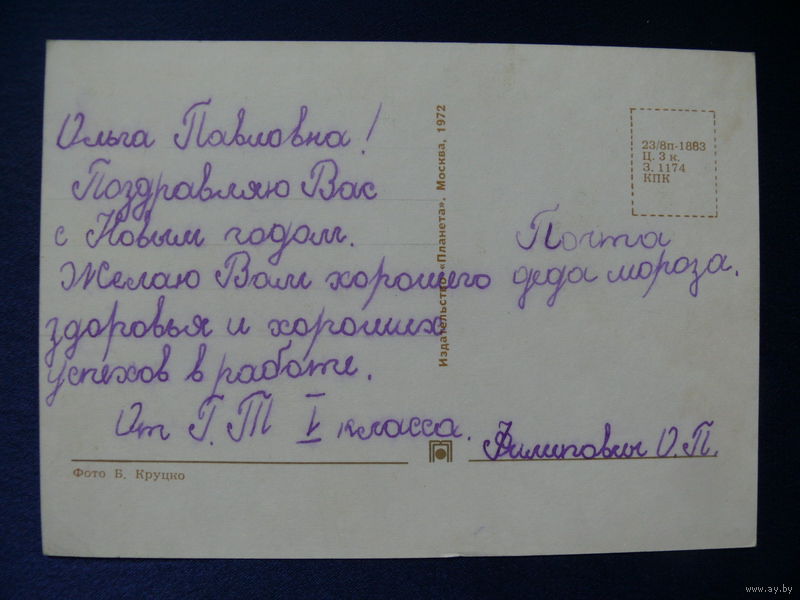 Ольга Павловна!
Поздравляю Вас
с Новым годом.
Желаю Вам хорошего
здоровья и хороших
успехов в работе.
От Г.Т V класса.
Фото Б. Круцко
Издательство «Планета». Москва, 1972
23/8п-1883
Ц. 3 к.
З. 1174
КПК
Почта
деда мороза.
Филипович О.П.
www.ay.by